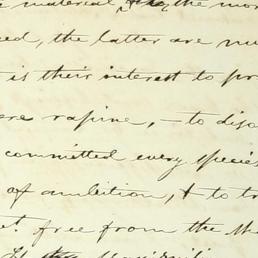 material the mor
eed, the latter are mu
is their interest to pr
ere rapine, — to diso
committed every species
of ambition, & to tr
free from the the